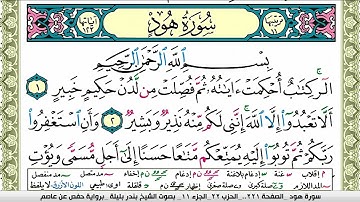 سُورَةُ هُودٍ
بِسْمِ اللَّهِ الرَّحْمَٰنِ الرَّحِيمِ
الٓر ۚ كِتَٰبٌ أُحْكِمَتْ ءَايَٰتُهُۥ ثُمَّ فُصِّلَتْ مِن لَّدُنْ حَكِيمٍ خَبِيرٍ ١
أَلَّا تَعْبُدُوٓا۟ إِلَّا ٱللَّهَ ۚ إِنَّنِى لَكُم مِّنْهُ نَذِيرٌ وَبَشِيرٌ ٢ وَأَنِ ٱسْتَغْفِرُوا۟
رَبَّكُمْ ثُمَّ تُوبُوٓا۟ إِلَيْهِ يُمَتِّعْكُم مَّتَٰعًا حَسَنًا إِلَىٰٓ أَجَلٍ مُّسَمًّى وَيُؤْتِ
سورة هود _ الصفحة ٢٢١_ الحزب ٢٢_ الجزء ١١_ بصوت الشيخ بندر بليلة_ برواية حفص عن عاصم